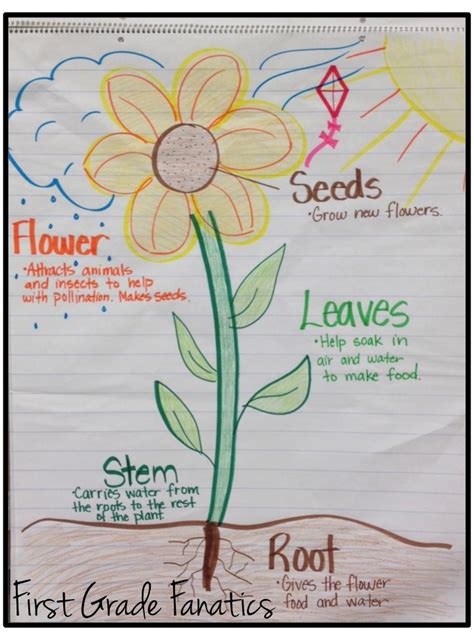 Seeds
• Grow new flowers.
Flower
• Attracts animals
and insects to help
with pollination. Makes seeds.
Leaves
• Help soak in
air and water
to make food.
Stem
• Carries water from
the roots to the rest
of the plant.
Root
• Gives the flower
food and water
First Grade Fanatics